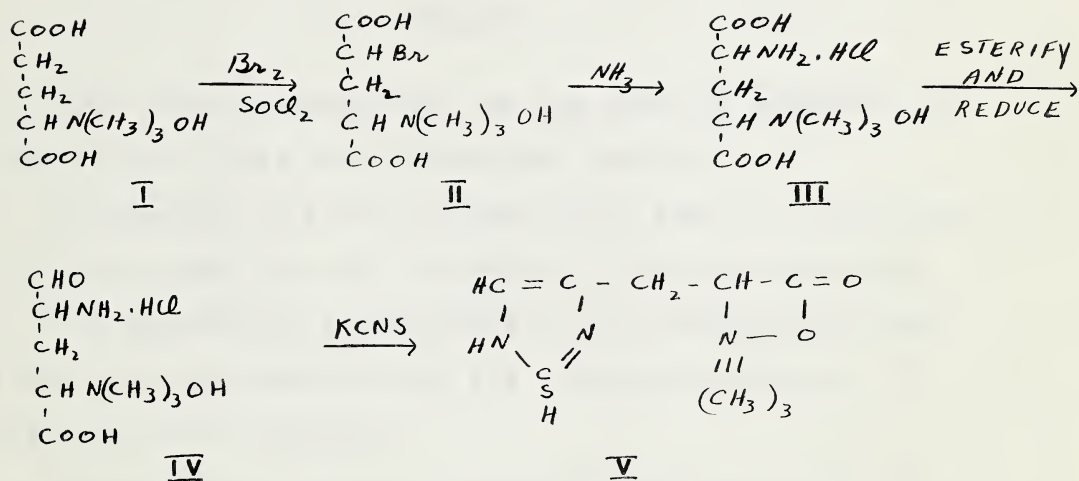 COOH
CH2
CH2
CHN(CH3)3OH
COOH
I
Br2
SOCl2
COOH
CHBr
CH2
CHN(CH3)3OH
COOH
II
NH3
COOH
CHNH2·HCl
CH2
CHN(CH3)3OH
COOH
III
ESTERIFY
AND
REDUCE
CHO
CHNH2·HCl
CH2
CHN(CH3)3OH
COOH
IV
KCNS
HC = C - CH2 - CH - C = O
HN N N — O
C
S
H
(CH3)3
V